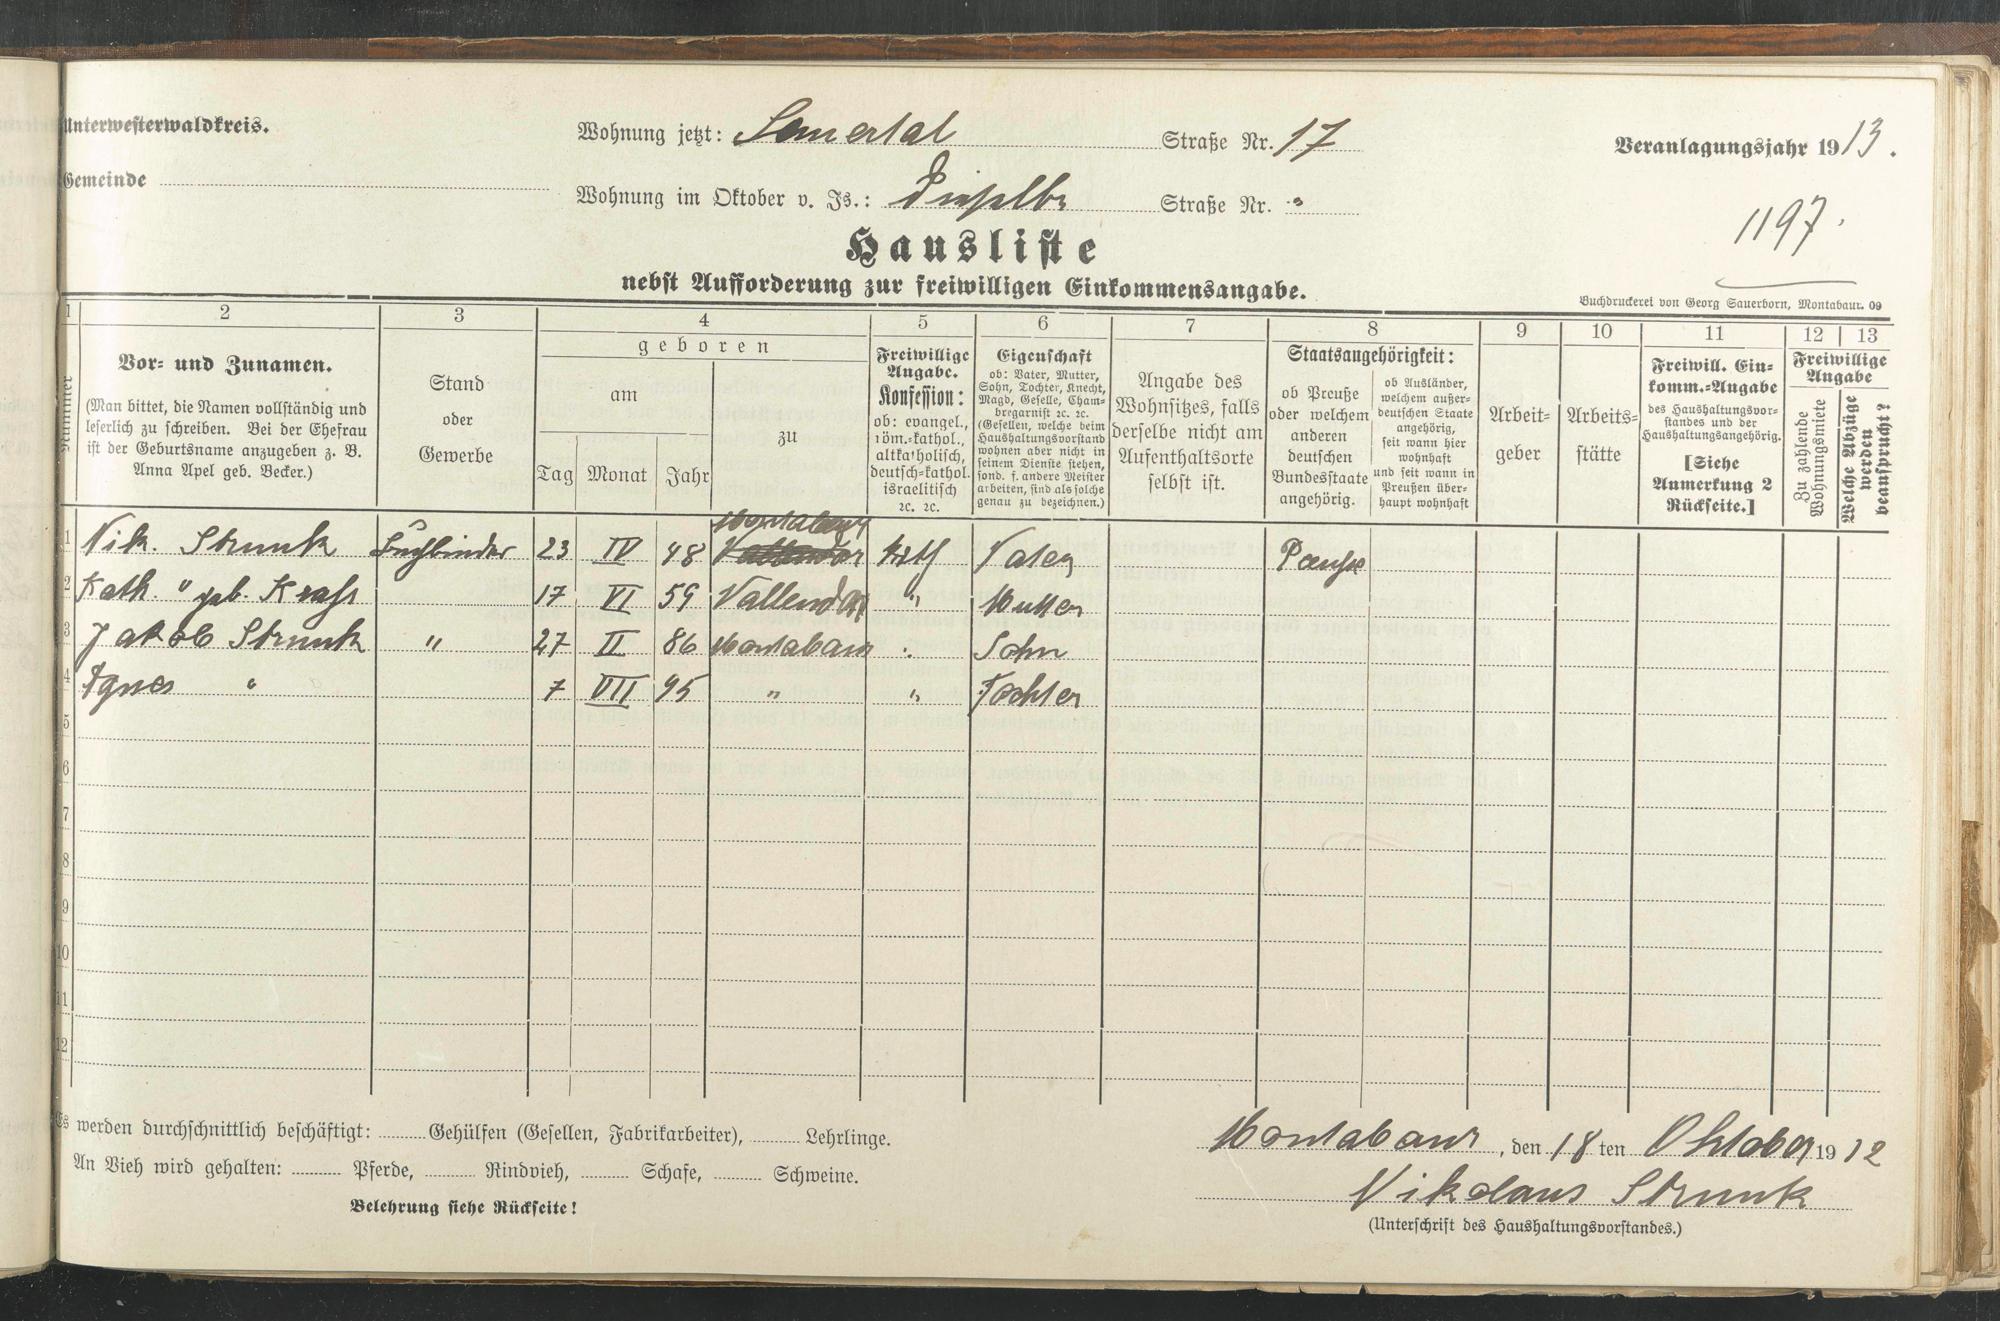 Unterwesterwaldkreis.
Wohnung jetzt: Sauertal Straße Nr. 17
Veranlagungsjahr 1913.
Gemeinde
Wohnung im Oktober v. Js.: Dieselbe Straße Nr. "
1197.
Hausliste
nebst Aufforderung zur freiwilligen Einkommensangabe.
Buchdruckerei von Georg Sauerborn, Montabaur. 09
1 2 3 4 5 6 7 8 9 10 11 12 13
Nummer
Vor- und Zunamen.
(Man bittet, die Namen vollständig und
leserlich zu schreiben. Bei der Ehefrau
ist der Geburtsname anzugeben z. B.
Anna Apel geb. Becker.)
Stand
oder
Gewerbe
geboren
am
zu
Tag Monat Jahr
Freiwillige
Angabe.
Konfession:
ob: evangel.,
röm.-kathol.,
altkatholisch,
deutsch-kathol.
israelitisch
ꝛc. ꝛc.
Eigenschaft
ob: Vater, Mutter,
Sohn, Tochter, Knecht,
Magd, Geselle, Cham-
bregarnist ꝛc. ꝛc.
(Gesellen, welche beim
Haushaltungsvorstand
wohnen aber nicht in
seinem Dienste stehen,
sond. f. andere Meister
arbeiten, sind als solche
genau zu bezeichnen.)
Angabe des
Wohnsitzes, falls
derselbe nicht am
Aufenthaltsorte
selbst ist.
Staatsangehörigkeit:
ob Preuße
oder welchem
anderen
deutschen
Bundesstaate
angehörig.
ob Ausländer,
welchem außer-
deutschen Staate
angehörig,
seit wann hier
wohnhaft
und seit wann in
Preußen über-
haupt wohnhaft
Arbeit-
geber
Arbeits-
stätte
Freiwill. Ein-
komm.-Angabe
des Haushaltungsvor-
standes und der
Haushaltungsangehörig.
[Siehe
Anmerkung 2
Rückseite.]
Freiwillige
Angabe
Zu zahlende
Wohnungsmiete
Welche Abzüge
werden
beansprucht?
Montabaur
1 Nik. Strunk Buchbinder 23 IV 48 Vallendar kath Vater Preuße
2 Kath. " geb. Krass 17 VI 59 Vallendar " Mutter
3 Jakob Strunk " 27 II 86 Montabaur " Sohn
4 Agnes " 7 VII 95 " " Tochter
5
6
7
8
9
10
11
12
Es werden durchschnittlich beschäftigt: Gehülfen (Gesellen, Fabrikarbeiter), Lehrlinge.
An Vieh wird gehalten: Pferde, Rindvieh, Schafe, Schweine.
Belehrung siehe Rückseite!
Montabaur, den 18ten Oktober 1912
Nikolaus Strunk
(Unterschrift des Haushaltungsvorstandes.)